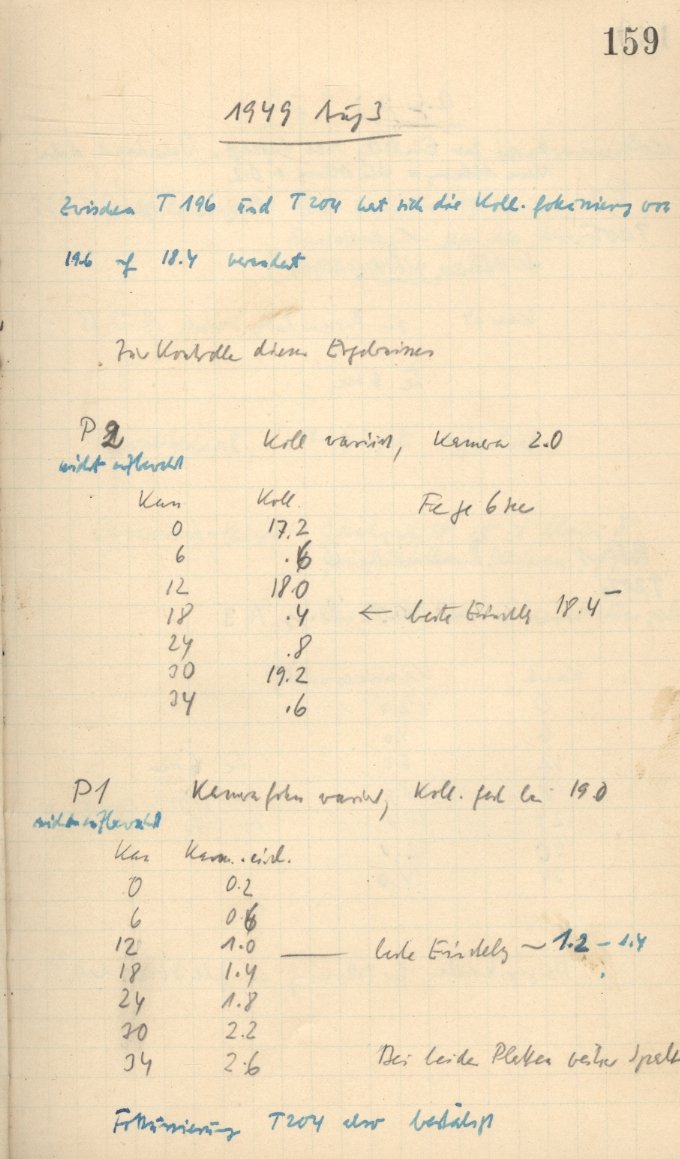 159
1949 Aug 3
Zwischen T 196 und T 204 hat sich die Koll. fokussierung von
19.6 auf 18.4 verändert
Zur Kontrolle dieses Ergebnisses
P2 Koll variiert, Kamera 2.0
nicht aufbewahrt
Kass Koll. Fe je 6 sec
0 17.2
6 .6
12 18.0
18 .4 ← beste Einstellg 18.45
24 .8
30 19.2
34 .6
P1 Kamerafokus variiert, Koll. fest bei 19.0
nicht aufbewahrt
Kass Kam. einst.
0 0.2
6 0.6
12 1.0 — beste Einstellg ~ 1.2 – 1.4
18 1.4
24 1.8
30 2.2
34 2.6 Bei beiden Platten weiter Spalt
Fokussierung T204 also bestätigt